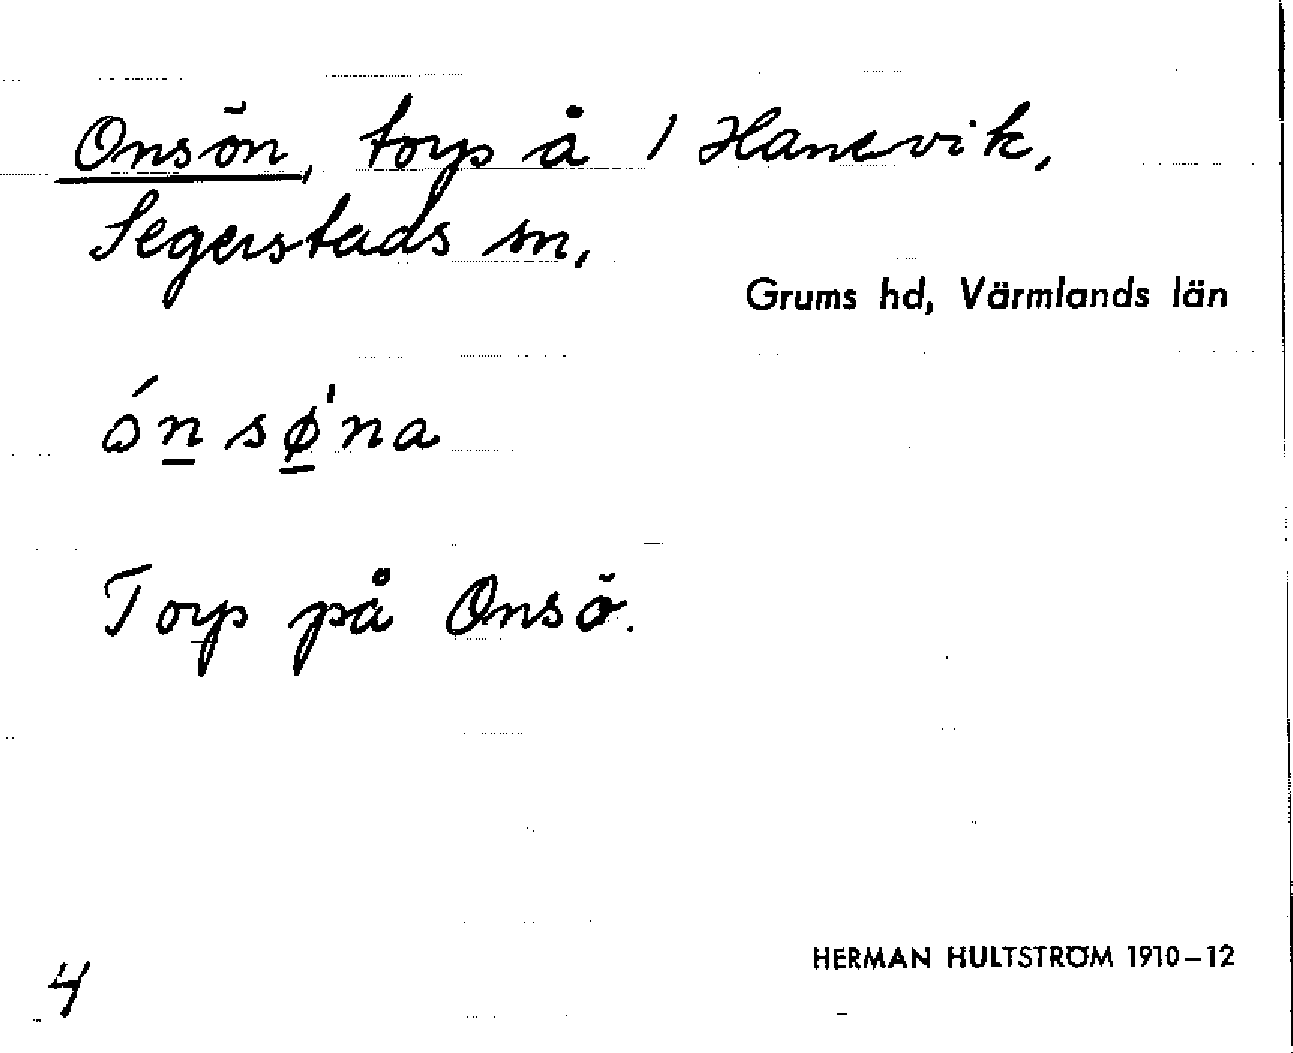 Onsön, torp å 1 Hansvik,
Segerstads sn,
Grums hd, Värmlands län
ón sø'na
Torp på Onsö.
HERMAN HULTSTRÖM 1910–12
4